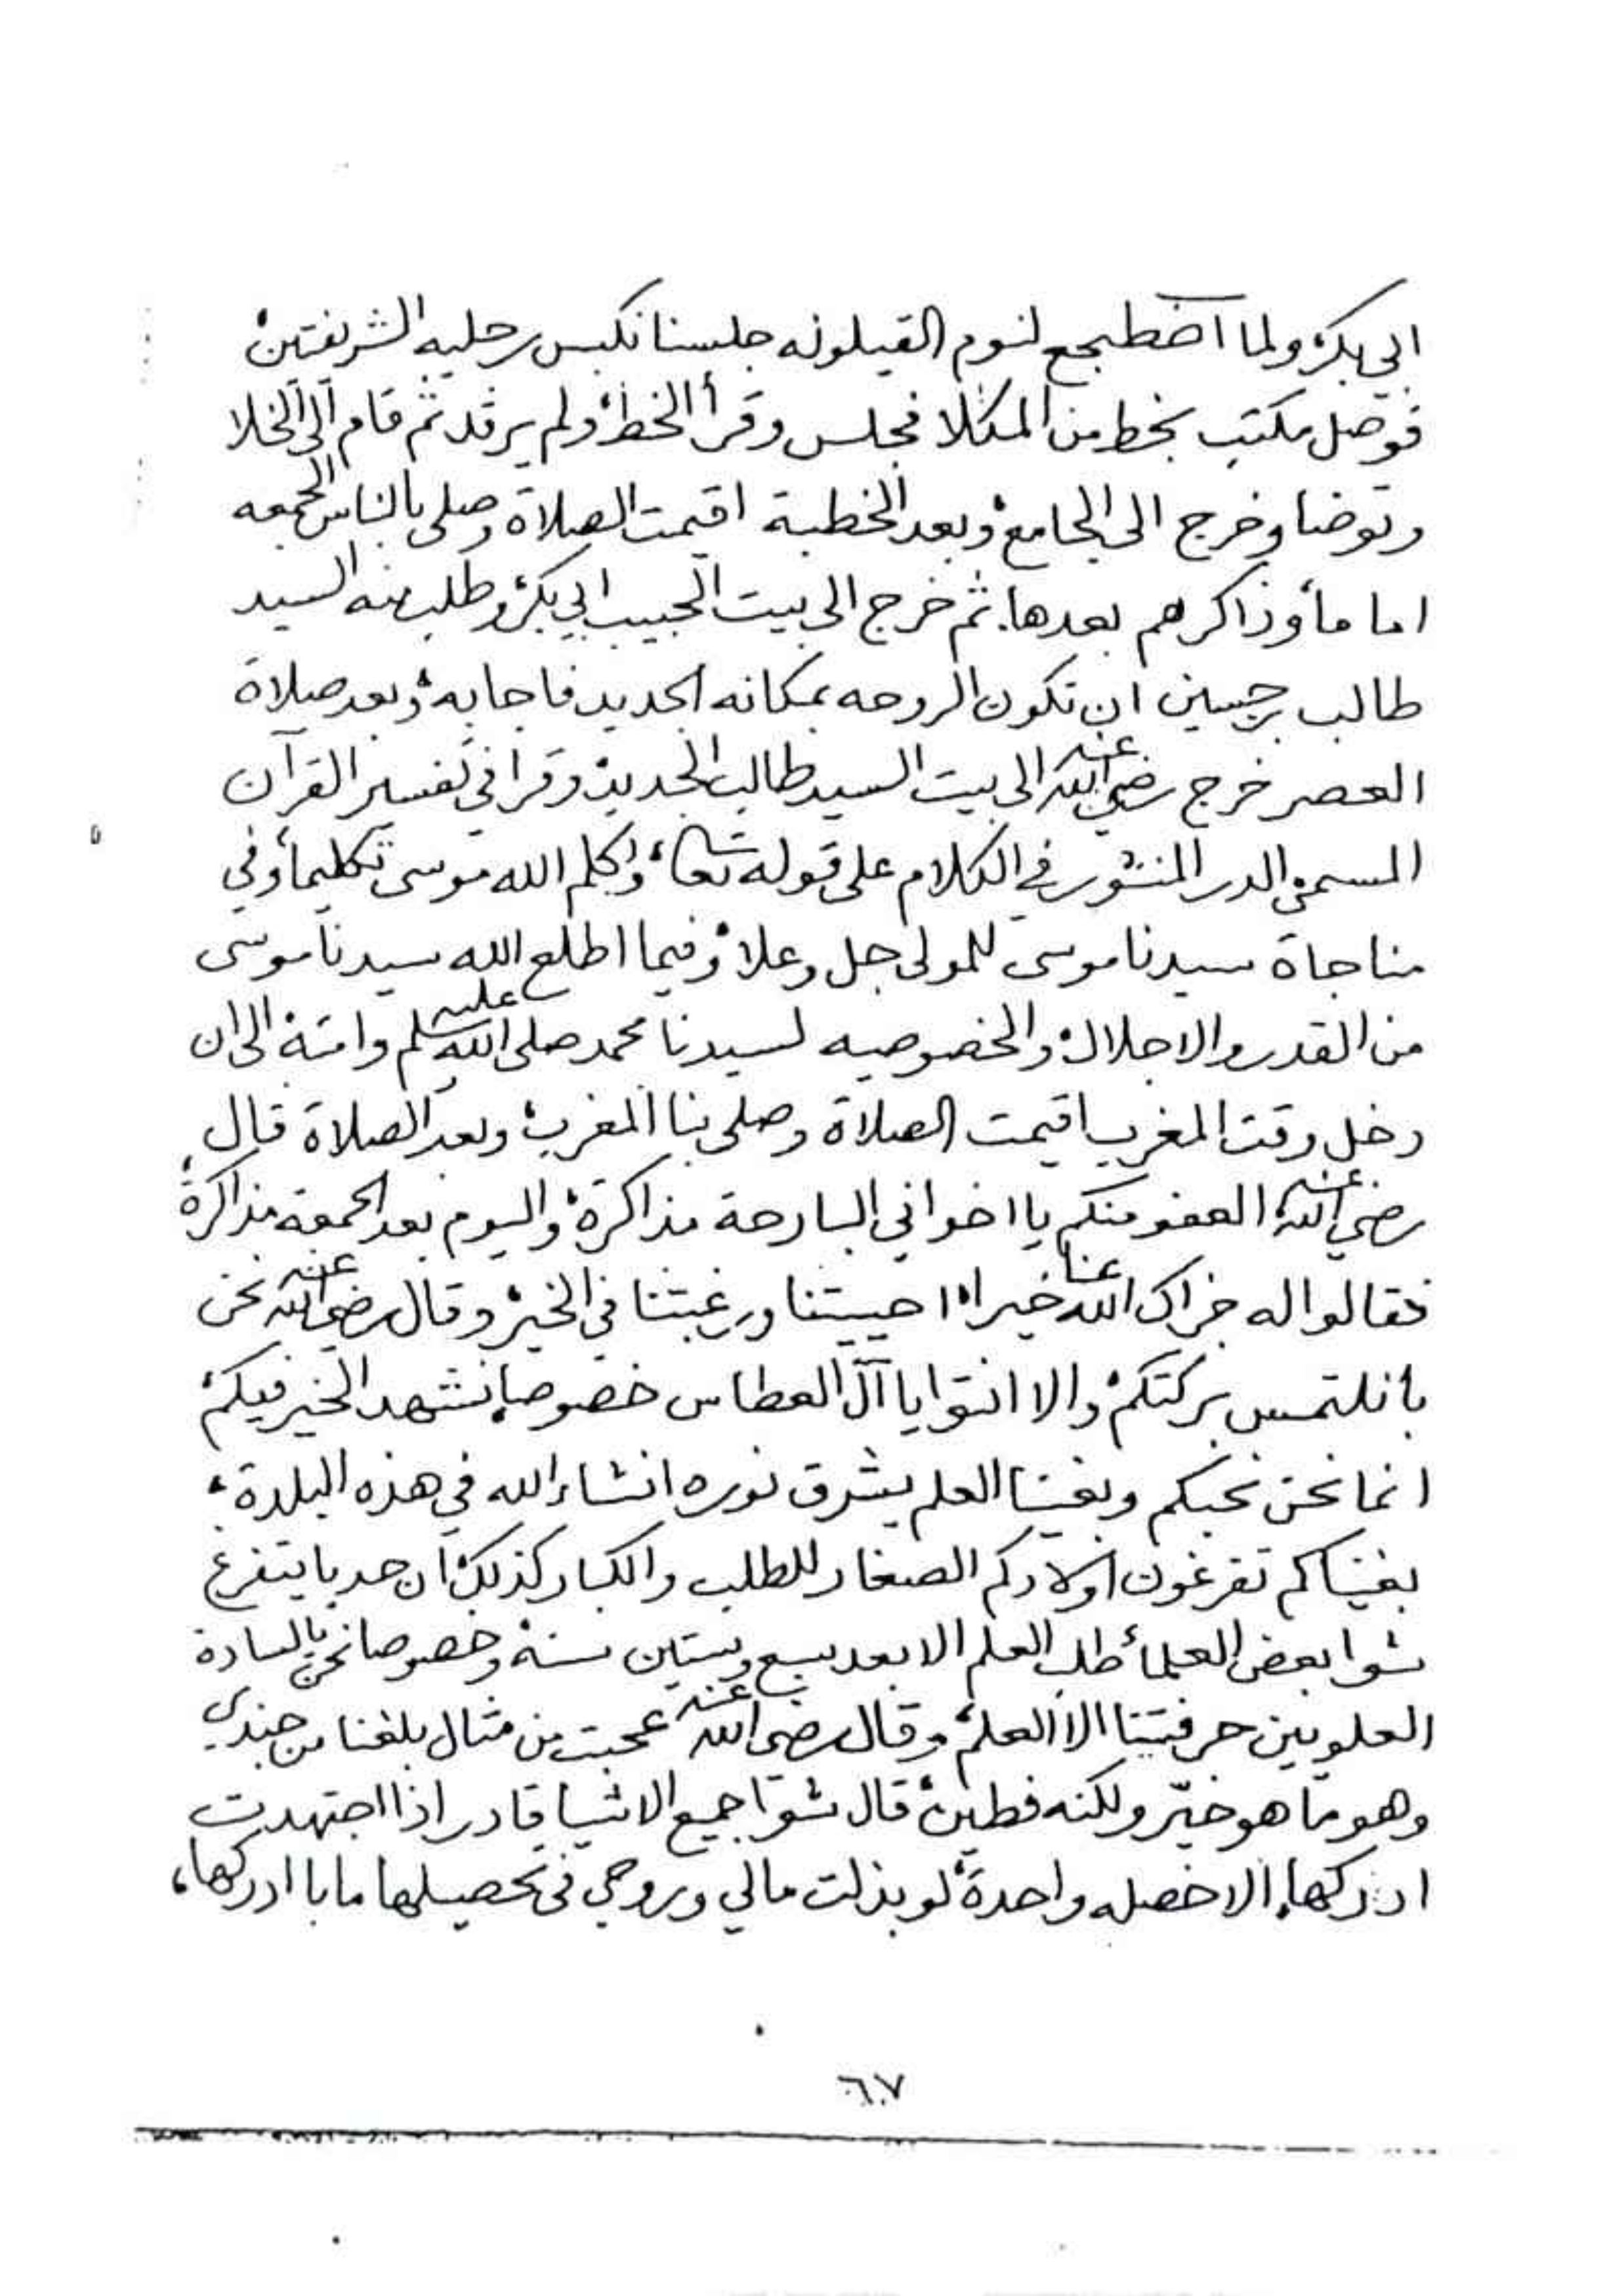 ابي بكر، ولما اضطجع لنوم القيلوله جلسنا نكبس رجليه الشريفتين،
فوصل مكتب بخط من المكلا فجلس وقرأ الخط، ولم يرقد ثم قام الى الخلا
وتوضا وخرج الى الجامع، وبعد الخطبة اقيمت الصلاة وصلى بالناس الجمعه
اماماً، وذاكرهم بعدها. ثم خرج الى بيت الحبيب ابي بكر، وطلب منه السيد
طالب بن حسين ان تكون الروحه بمكانه الجديد فاجابه، وبعد صلاة
العصر خرج رضي الله عنه الى بيت السيد طالب الجديد، وقرا في تفسير القرآن
المسمى، الدر المنثور في الكلام على قوله تعالى، وكلم الله موسى تكليماً، وفي
مناجاة سيدنا موسى للمولى جل وعلا، وفيما اطلع الله سيدنا موسى
من القدر والاجلال، والخصوصيه لسيدنا محمد صلى الله عليه وسلم وامته، الى ان
دخل وقت المغرب اقيمت الصلاة وصلى بنا المغرب، وبعد الصلاة قال
رضي الله عنه، العفو منكم يا اخواني البارحة مذاكرة، واليوم بعد الجمعة مذاكرة،
فقالوا له جزاك الله عنا خيراً، احييتنا ورغبتنا في الخير، وقال رضي الله عنه نحن
بانلتمس بركتكم، والا انتوا يا آل العطاس خصوصا، نشهد الخير فيكم،
انما نحن نحبكم وبغينا العلم يشرق نوره انشاء الله في هذه البلدة،
بغيناكم تفرغون اولادكم الصغار للطلب والكبار كذلك، ان حد با يتفرغ
شوا بعض العلماء طلب العلم الا بعد سبع وستين سنة، وخصوصا نحن يالسادة
العلويين حرفتنا الا العلم، وقال رضي الله عنه عجبت من مثال بلغنا من جندي
وهو ما هو خيّر ولكنه فطين، قال شوا جميع الاشيا قادر اذا اجتهدت
ادركها، الا خصله واحدة، لو بذلت مالي وروحي في تحصيلها ما با ادركها،
٦٧